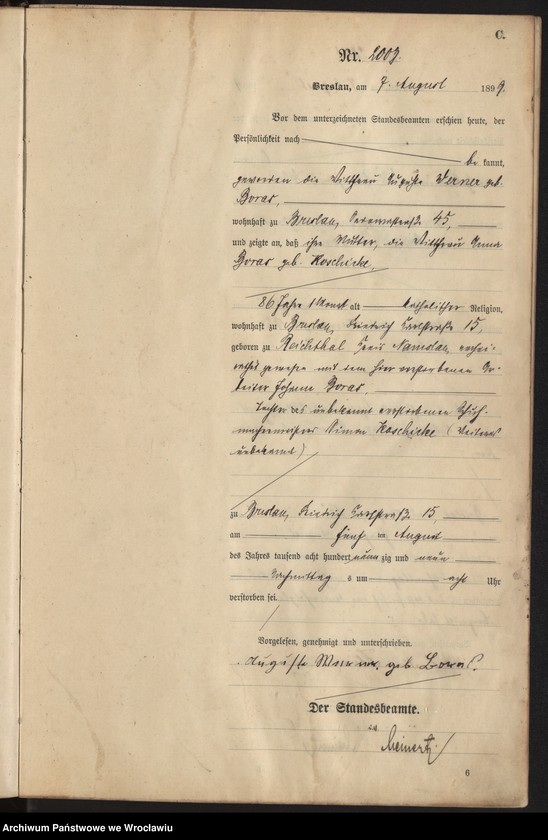 C.
Nr. 2003.
Breslau, am 7. August 1899.
Vor dem unterzeichneten Standesbeamten erschien heute, der
Persönlichkeit nach
be kannt,
geworden die Wittfrau Auguste Werner geb.
Boras,
wohnhaft zu Breslau, 45,
und zeigte an, daß ihre Mutter, die Wittfrau Anna
Boras geb. Koschicke,
86 Jahre 1 Monat alt katholischer Religion,
wohnhaft zu Breslau, Friedrich Carlstraße 15,
geboren zu Reichthal Kreis Namslau, verhei-
rathet gewesen mit dem hier verstorbenen Ar-
beiter Johann Boras,
Tochter des unbekannt verstorbenen Schuh-
machermeisters Simon Koschicke (Weiteres
unbekannt)
zu Breslau, Friedrich Carlstraße 15,
am fünf ten August
des Jahres tausend acht hundert neun zig und neun
Nachmittag s um acht Uhr
verstorben sei.
Vorgelesen, genehmigt und unterschrieben.
Auguste Werner. geb Boras.
Der Standesbeamte.
Meinertz
6
Archiwum Państwowe we Wrocławiu